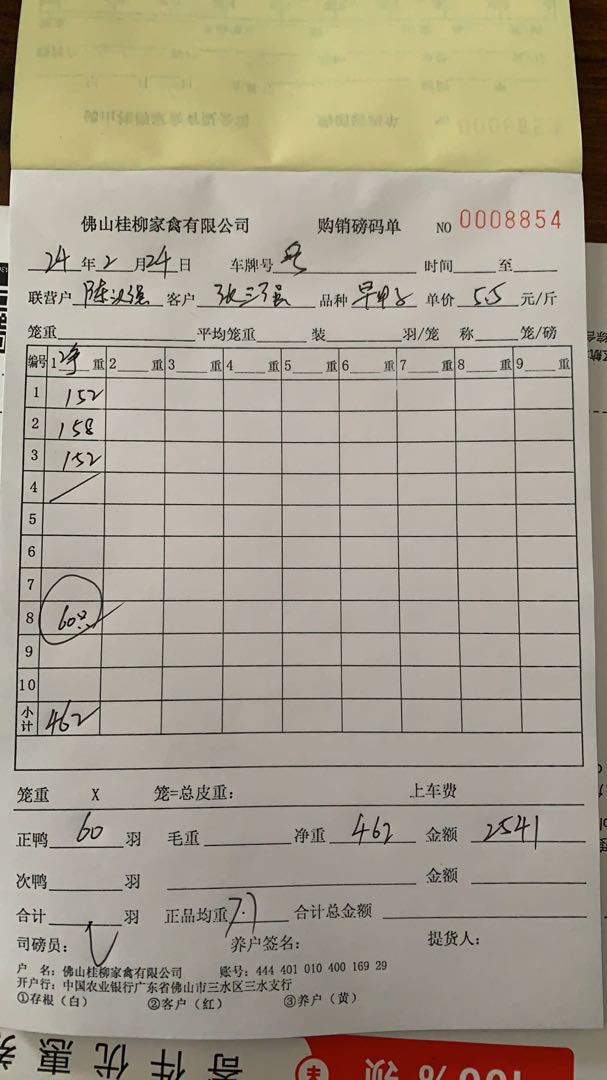 佛山桂柳家禽有限公司 购销磅码单 NO 0008854
24年2月24日 车牌号 时间 至
联营户 陈汉强 客户 张三强 品种 单价 5.5 元/斤
笼重 平均笼重 装 羽/笼 称 笼/磅
编号 1净重 2 重 3 重 4 重 5 重 6 重 7 重 8 重 9 重
1 152
2 158
3 152
4
5
6
7
8 60只
9
10
小计 462
笼重 X 笼=总皮重: 上车费
正鸭 60 羽 毛重 净重 462 金额 2541
次鸭 羽 金额
合计 羽 正品均重 7.7 合计总金额
司磅员: 养户签名: 提货人:
户 名: 佛山桂柳家禽有限公司 账号: 444 401 010 400 169 29
开户行: 中国农业银行广东省佛山市三水区三水支行
①存根(白) ②客户(红) ③养户(黄)
寄件优惠券
100%领